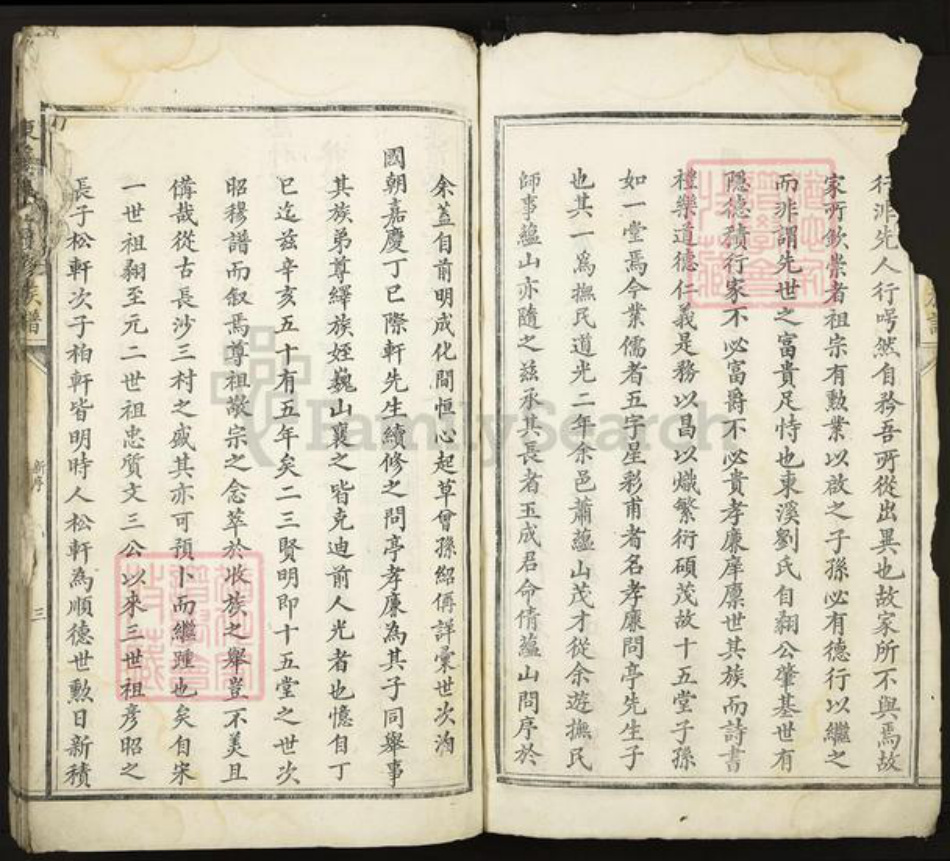 行非先人行咢然自矜吾所從出異也故家所不與焉故
家所欽崇者祖宗有勲業以啟之子孫必有德行以繼之
而非謂先世之富貴足恃也東溪劉氏自翱公肇基世有
隠德積行家不必富爵不必貴孝廉庠廪世其族而詩書
禮樂道德仁義是務以昌以熾繁衍碩茂故十五堂子孫
如一堂焉今業儒者五字星彩甫者名孝廉問亭先生子
也其一為撫民道光二年余邑蕭藴山茂才從余遊撫民
師事藴山亦隨之兹承其長者玉成君命倩藴山問序於
余盖自前明成化間恒心起草曾孫紹侢詳彚世次洵
國朝嘉慶丁巳際軒先生續修之問亭孝廉為其子同舉事
其族弟尊繹族姪巍山襄之皆克迪前人光者也憶自丁
巳迄兹辛亥五十有五年矣二三賢明即十五堂之世次
昭穆譜而叙焉尊祖敬宗之念萃於收族之舉豈不美且
備哉從古長沙三村之盛其亦可預卜而繼踵也矣自宋
一世祖翱至元二世祖忠質文三公以來三世祖彦昭之
長子松軒次子柏軒皆明時人松軒為順德世勲日新積
族譜
新序
三
FamilySearch